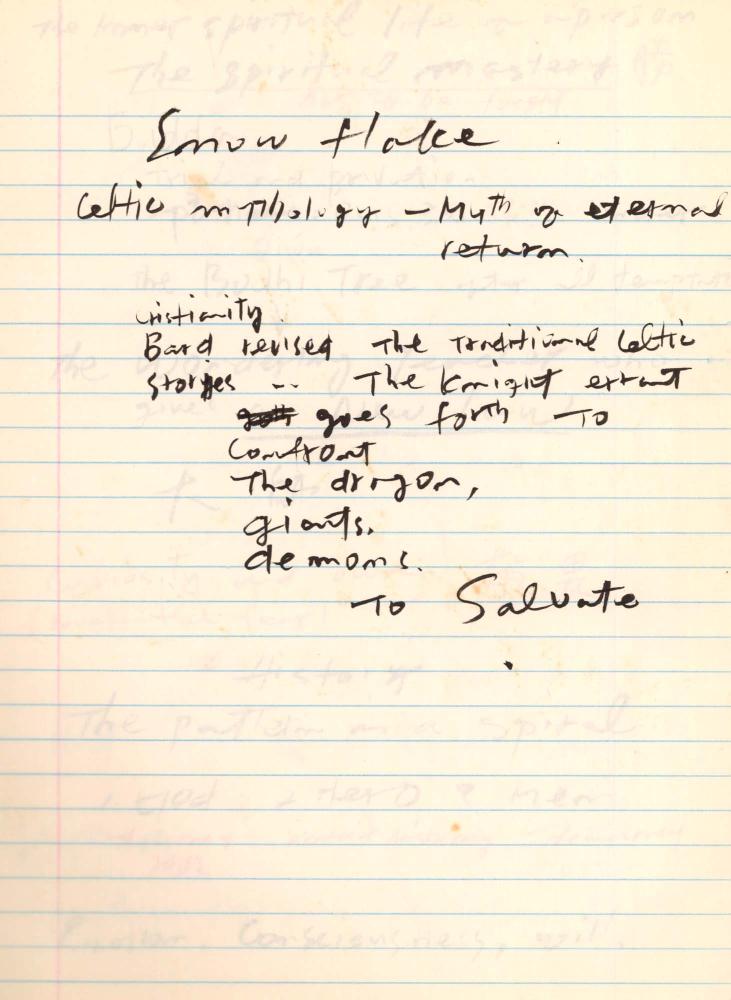 Snow flake
Celtic mythology – Myth of eternal
return.
Cristianity
Bard revised The Traditional Celtic
stories ... The Knight errant
goes forth To
Confront
The dragon,
giants.
demons.
To Salvate